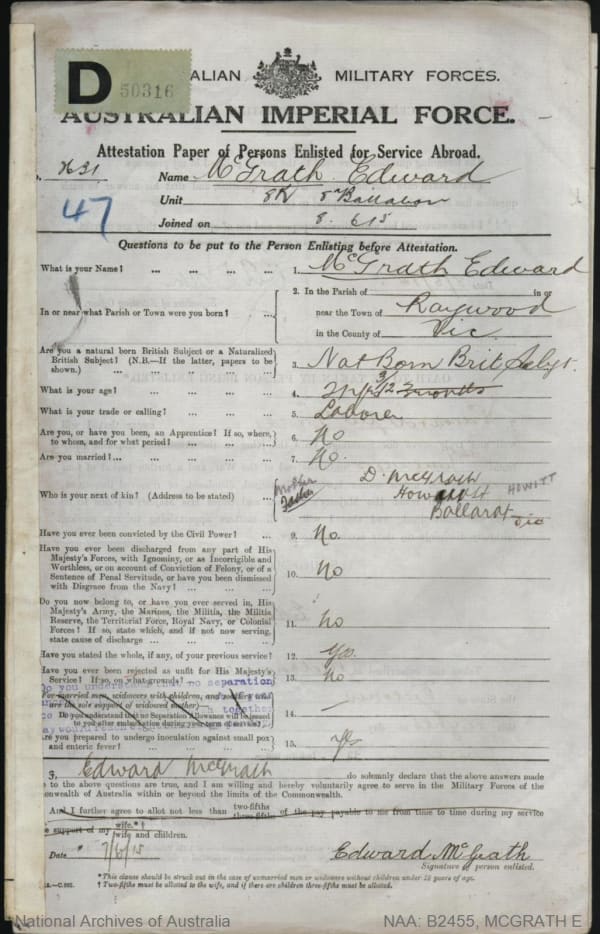 D
50316
ALIAN MILITARY FORCES.
AUSTRALIAN IMPERIAL FORCE.
Attestation Paper of Persons Enlisted for Service Abroad.
Name McGrath Edward
47
Unit 8th Battalion
Joined on 8. 6 15
Questions to be put to the Person Enlisting before Attestation.
What is your Name? ... ... ... ... 1. McGrath Edward
In or near what Parish or Town were you born? ... 2. In the Parish of in or
near the Town of Raywood
in the County of Vic
Are you a natural born British Subject or a Naturalized British Subject? (N.B.—If the latter, papers to be shown.) ... ... ... ... 3. Nat Born Brit Subjt.
What is your age? ... ... ... ... 4.
What is your trade or calling? ... ... ... 5. Laborer
Are you, or have you been, an Apprentice? If so, where, to whom, and for what period? ... ... 6. No
Are you married? ... ... ... ... 7. No.
Who is your next of kin? (Address to be stated) ... Mother Father D. McGrath
Howitt St HOWITT
Ballarat Vic
Have you ever been convicted by the Civil Power? ... 9. No.
Have you ever been discharged from any part of His Majesty's Forces, with Ignominy, or as Incorrigible and Worthless, or on account of Conviction of Felony, or of a Sentence of Penal Servitude, or have you been dismissed with Disgrace from the Navy? ... ... 10. No
Do you now belong to, or have you ever served in, His Majesty's Army, the Marines, the Militia, the Militia Reserve, the Territorial Force, Royal Navy, or Colonial Forces? If so, state which, and if not now serving, state cause of discharge ... ... ... 11. No
Have you stated the whole, if any, of your previous service? 12. Yes.
Have you ever been rejected as unfit for His Majesty's Service? If so, on what grounds? ... 13. No
Do you understand that no separation
(For married men, widowers with children, and soldiers who are the sole support of widowed mother)—
Do you understand that no Separation Allowance will be issued to you after embarkation during your term of service? 14. —
Are you prepared to undergo inoculation against small pox and enteric fever? ... ... ... 15. Yes
I, Edward McGrath do solemnly declare that the above answers made
to the above questions are true, and I am willing and hereby voluntarily agree to serve in the Military Forces of the
Commonwealth of Australia within or beyond the limits of the Commonwealth.
And I further agree to allot not less than two-fifths three-fifths of the pay payable to me from time to time during my service
support of my wife.*† wife and children.
Date 7/6/15
Edward McGrath
Signature of person enlisted.
*This clause should be struck out in the case of unmarried men or widowers without children under 18 years of age.
† Two-fifths must be allotted to the wife, and if there are children three-fifths must be allotted.
National Archives of Australia
NAA: B2455, MCGRATH E